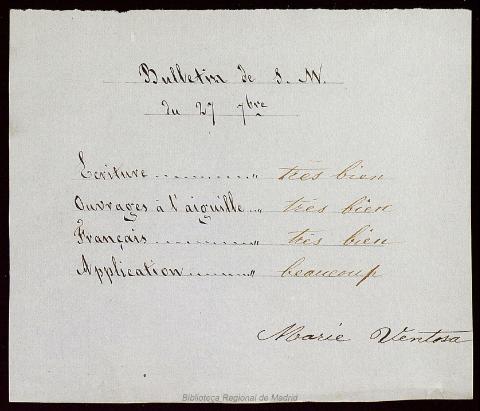 Bulletin de S. M.
du 27 7bre
Ecriture ........... " très bien
Ouvrages à l'aiguille .. " très bien
Français ........... " très bien
Application ....... " beaucoup
Marie Ventosa
Biblioteca Regional de Madrid